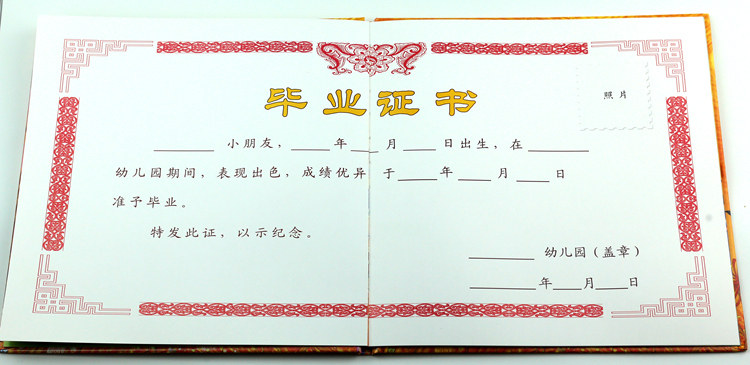 毕业证书
照片
______小朋友，____年____月____日出生，在______
幼儿园期间，表现出色，成绩优异 于____年____月____日
准予毕业。
特发此证，以示纪念。
______幼儿园（盖章）
______年____月____日